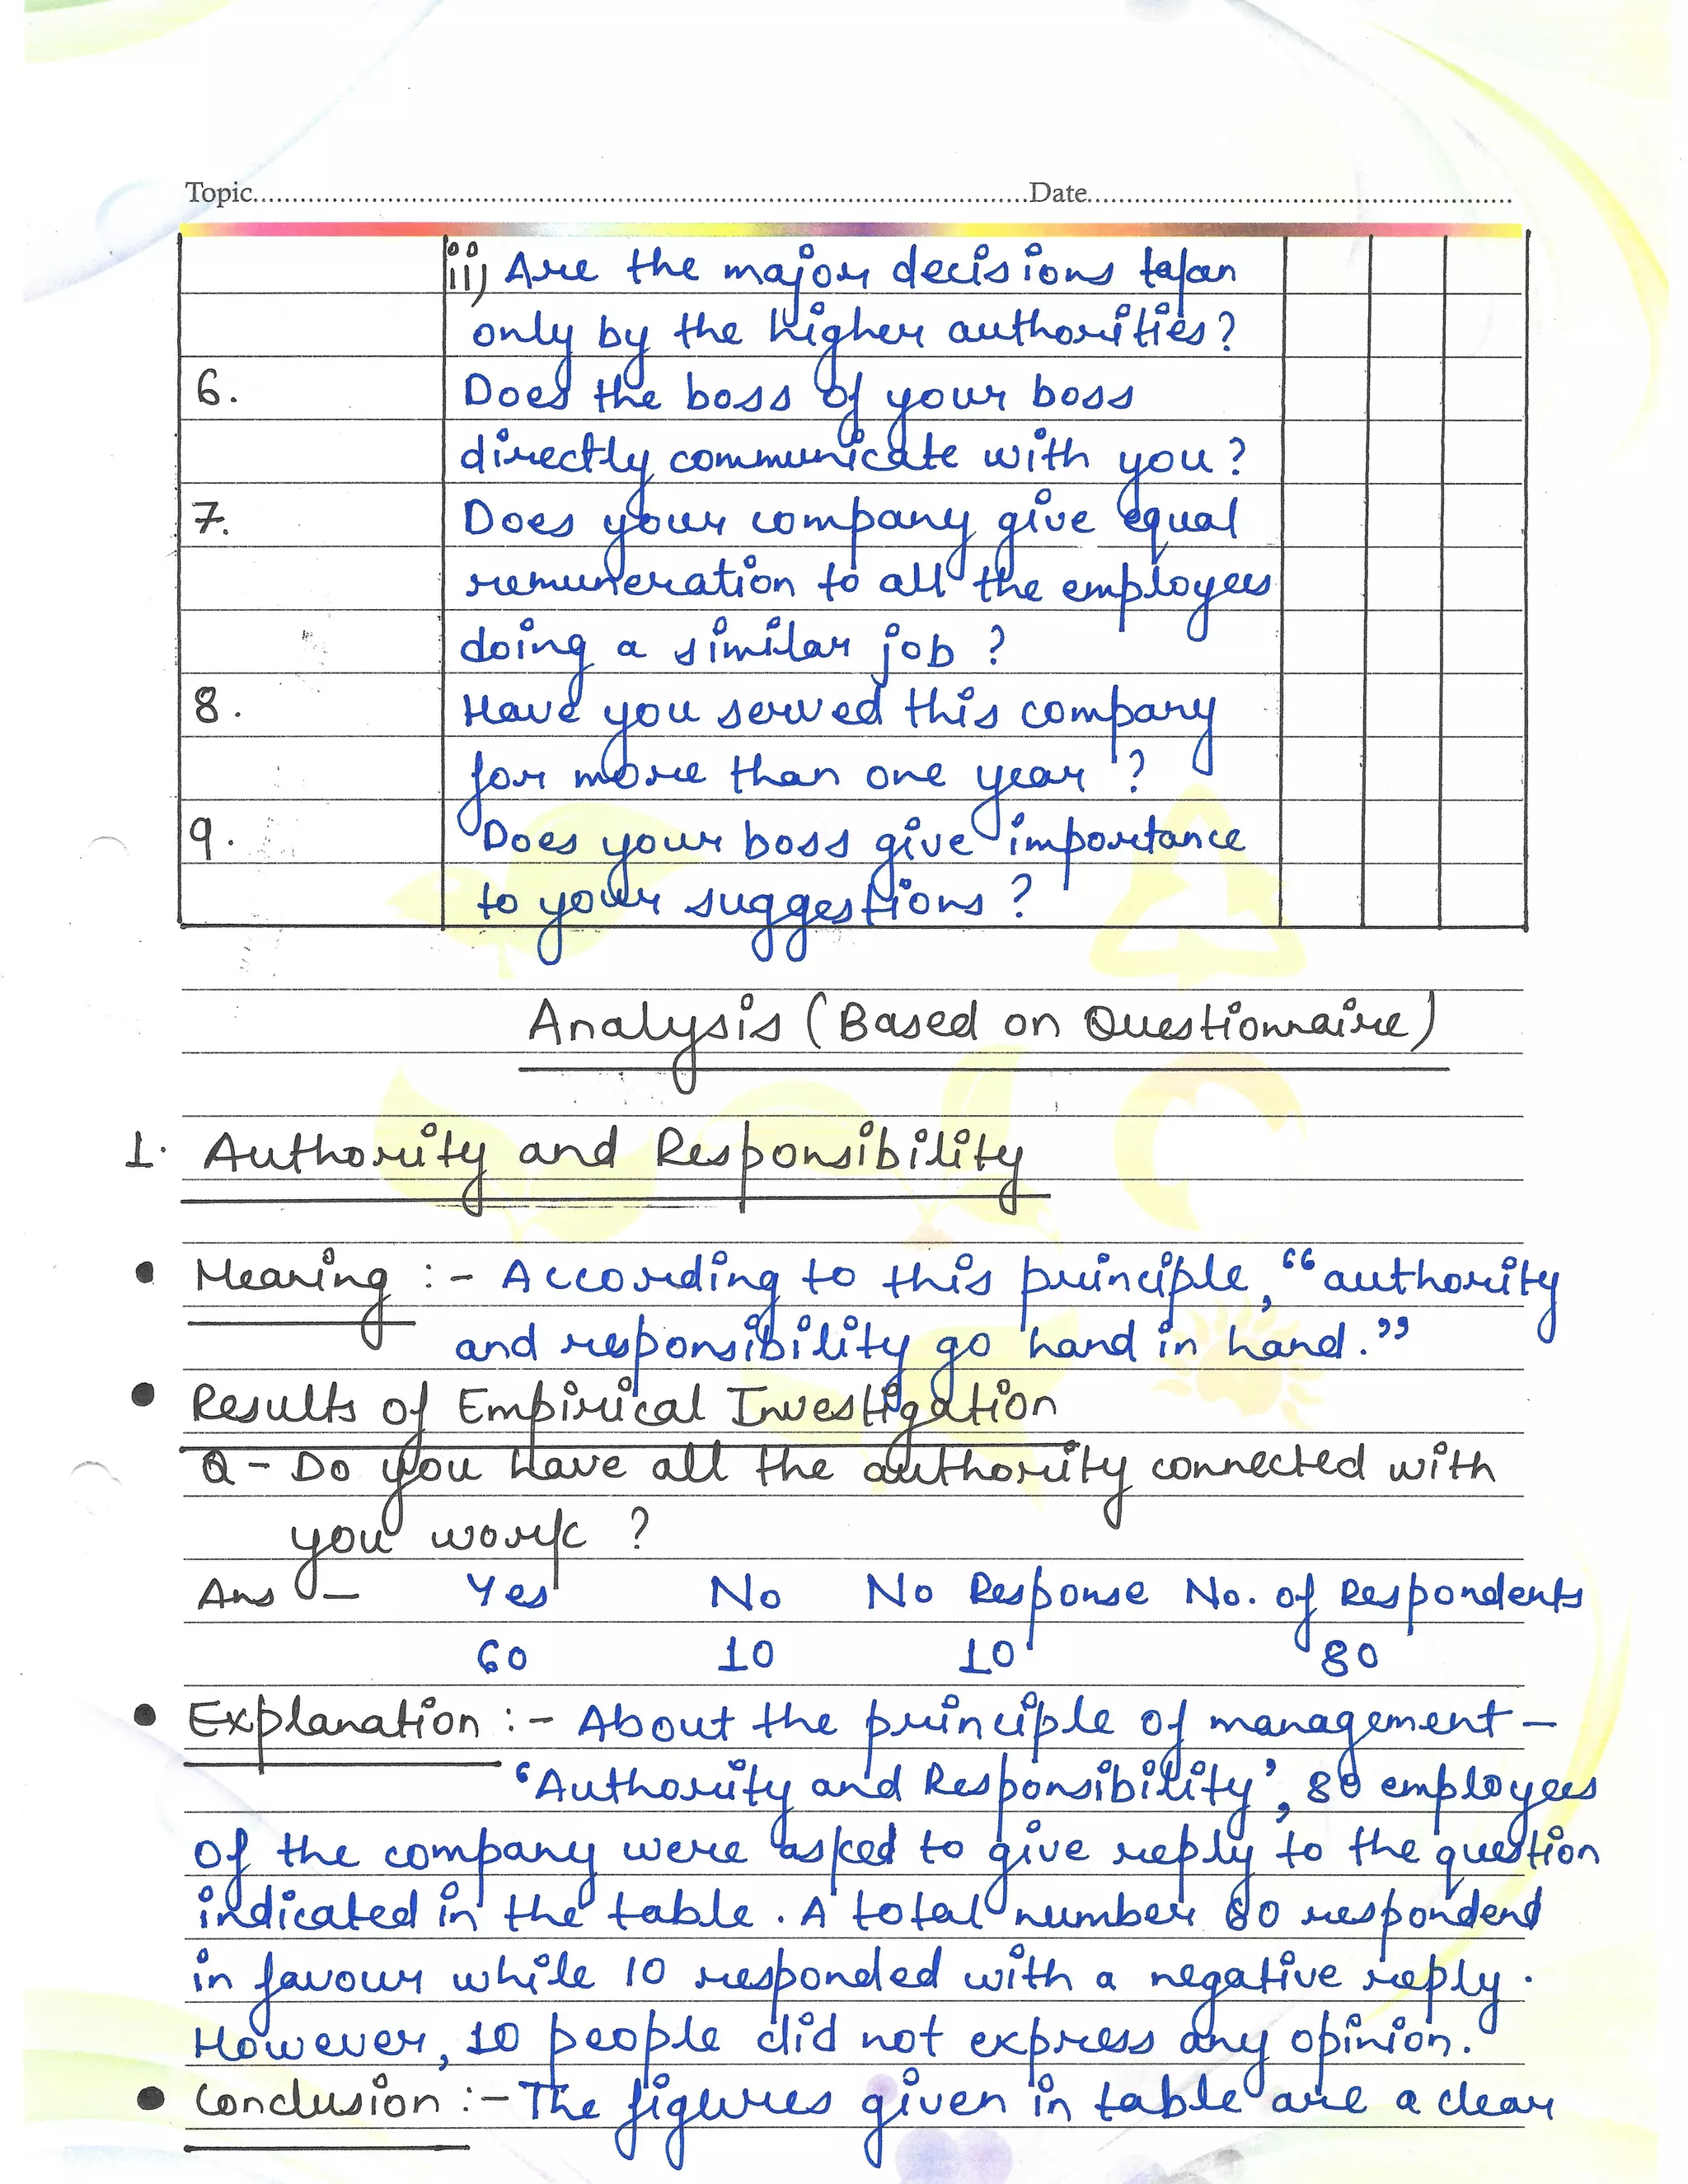 Topic.....Date.....
ii) Are the major decisions takan
only by the higher authorities?
6. Does the boss of your boss
directly communicate with you?
7. Does your company give equal
remuneration to all the employees
doing a similar job?
8. Have you served this company
for more than one year?
9. Does your boss give importance
to your suggestions?
Analysis (Based on Questionnaire)
1. Authority and Responsibility
• Meaning :- According to this principle, "authority
and responsibility go hand in hand."
• Results of Empirical Investigation
Q - Do you have all the authority connected with
you work?
Ans - Yes No No Response No. of Respondents
60 10 10 80
• Explanation :- About the principle of management -
'Authority and Responsibility', 80 employees
of the company were asked to give reply to the question
indicated in the table. A total number 60 respondend
in favour while 10 responded with a negative reply.
However, 10 people did not express any opinion.
• Conclusion :- The figures given in table are a clear